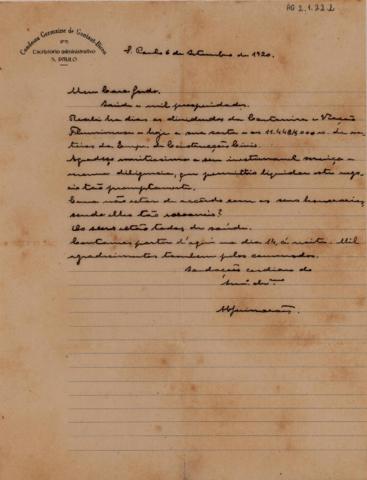 AG 2.1.22.2
Condessa Germaine de Gontaut-Biron
Escritorio administrativo
S. PAULO
S. Paulo 6 de Setembro de 1920.
Meu Caro
Saude e mil prosperidades.
Recebi ha dias os dividendos da Cantareira e Viação
Fluminense e hoje a sua carta e os 11.448$000
da Empr. de Construcções Civis.
Agradeço muitissimo a sua
diligencia, que permittiu liquidar este nego-
cio tão promptamente.
Como não estar de accordo com os seus honorarios,
sendo elles tão razoaveis?
Os seus estão todos de saúde.
Contamos partir d'aqui no dia 14, á noite. Mil
agradecimentos tambem pelos
Saudações cordiaes do